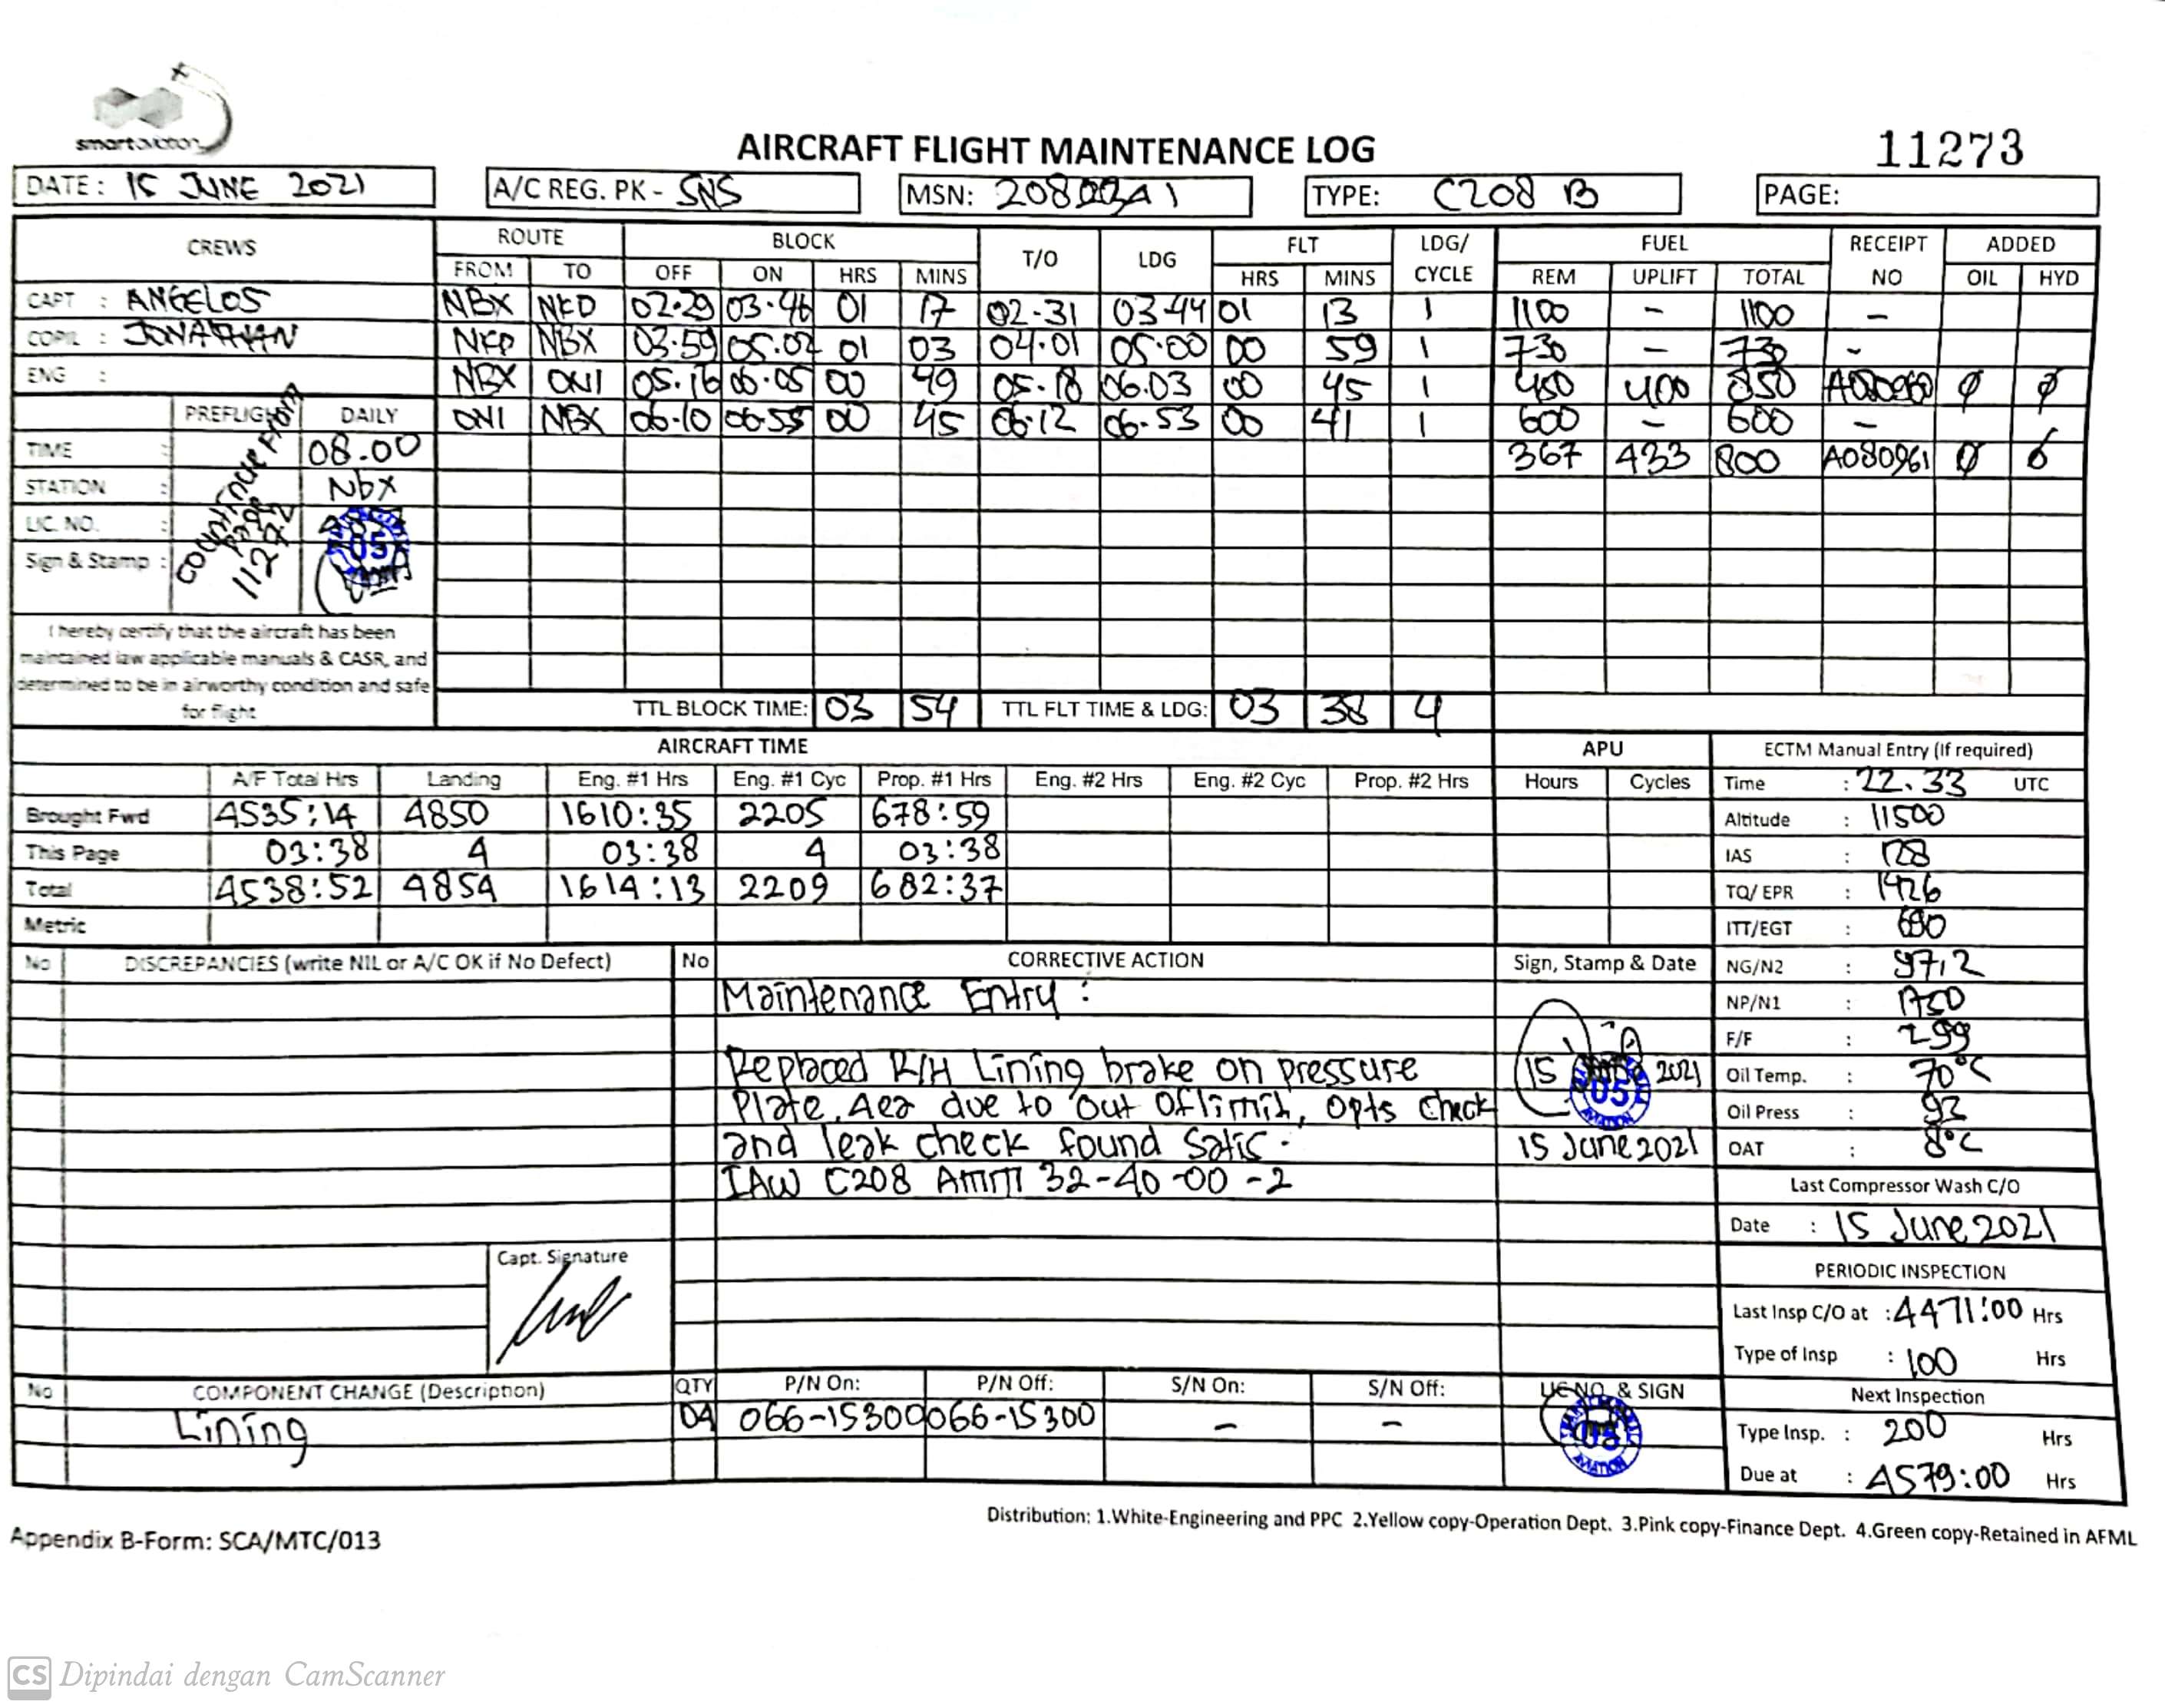 smart aviation
AIRCRAFT FLIGHT MAINTENANCE LOG
11273
DATE: 15 JUNE 2021
A/C REG. PK - SNS
MSN:
TYPE: C208 B
PAGE:
CREWS
ROUTE BLOCK T/O LDG FLT LDG/ CYCLE FUEL RECEIPT NO ADDED
FROM TO OFF ON HRS MINS HRS MINS REM UPLIFT TOTAL OIL HYD
CAPT : ANGELOS
NBX NKD 02.29 03.46 01 17 02.31 03.44 01 13 1 1100 - 1100 -
COPIL : JONATHAN
NKD NBX 03.59 05.02 01 03 04.01 05.00 00 59 1 730 - 730 -
ENG :
NBX ONI 05.16 06.05 00 49 05.18 06.03 00 45 1 450 400 850 A080960 Ø Ø
PREFLIGHT DAILY
ONI NBX 06.10 06.55 00 45 06.12 06.53 00 41 1 600 - 600 -
TIME : 08.00
367 433 800 A080961 Ø
STATION : NBX
LIC. NO. :
Sign & Stamp :
Page 11272
05
I hereby certify that the aircraft has been
maintained iaw applicable manuals & CASR, and
determined to be in airworthy condition and safe
for flight
TTL BLOCK TIME: 03 54 TTL FLT TIME & LDG: 03 38 4
AIRCRAFT TIME
APU
A/F Total Hrs Landing Eng. #1 Hrs Eng. #1 Cyc Prop. #1 Hrs Eng. #2 Hrs Eng. #2 Cyc Prop. #2 Hrs Hours Cycles
Brought Fwd 4535:14 4850 1610:35 2205 678:59
This Page 03:38 4 03:38 4 03:38
Total 4538:52 4854 1614:13 2209 682:37
Metric
ECTM Manual Entry (If required)
Time : 22.33 UTC
Altitude : 11500
IAS : 128
TQ/ EPR : 1426
ITT/EGT : 690
NG/N2 : 97,2
NP/N1 : 1750
F/F : 299
Oil Temp. : 70°C
Oil Press : 93
OAT : 8°C
No DISCREPANCIES (write NIL or A/C OK if No Defect) No CORRECTIVE ACTION Sign, Stamp & Date
Maintenance Entry :
Replaced R/H Lining brake on pressure
Plate, 4ea due to out Of limit, Opts Check
and leak check found Satis.
IAW C208 AMM 32-40-00-2
15 2021
05
AVIATION
15 June 2021
Capt. Signature
Last Compressor Wash C/O
Date : 15 June 2021
PERIODIC INSPECTION
Last Insp C/O at : 4471:00 Hrs
Type of Insp : 100 Hrs
Next Inspection
Type Insp. : 200 Hrs
Due at : 4579:00 Hrs
No COMPONENT CHANGE (Description) QTY P/N On: P/N Off: S/N On: S/N Off: LIC NO. & SIGN
Lining 04 066-15300 066-15300 - -
05
AVIATION
Distribution: 1.White-Engineering and PPC 2.Yellow copy-Operation Dept. 3.Pink copy-Finance Dept. 4.Green copy-Retained in AFML
Appendix B-Form: SCA/MTC/013
CS Dipindai dengan CamScanner